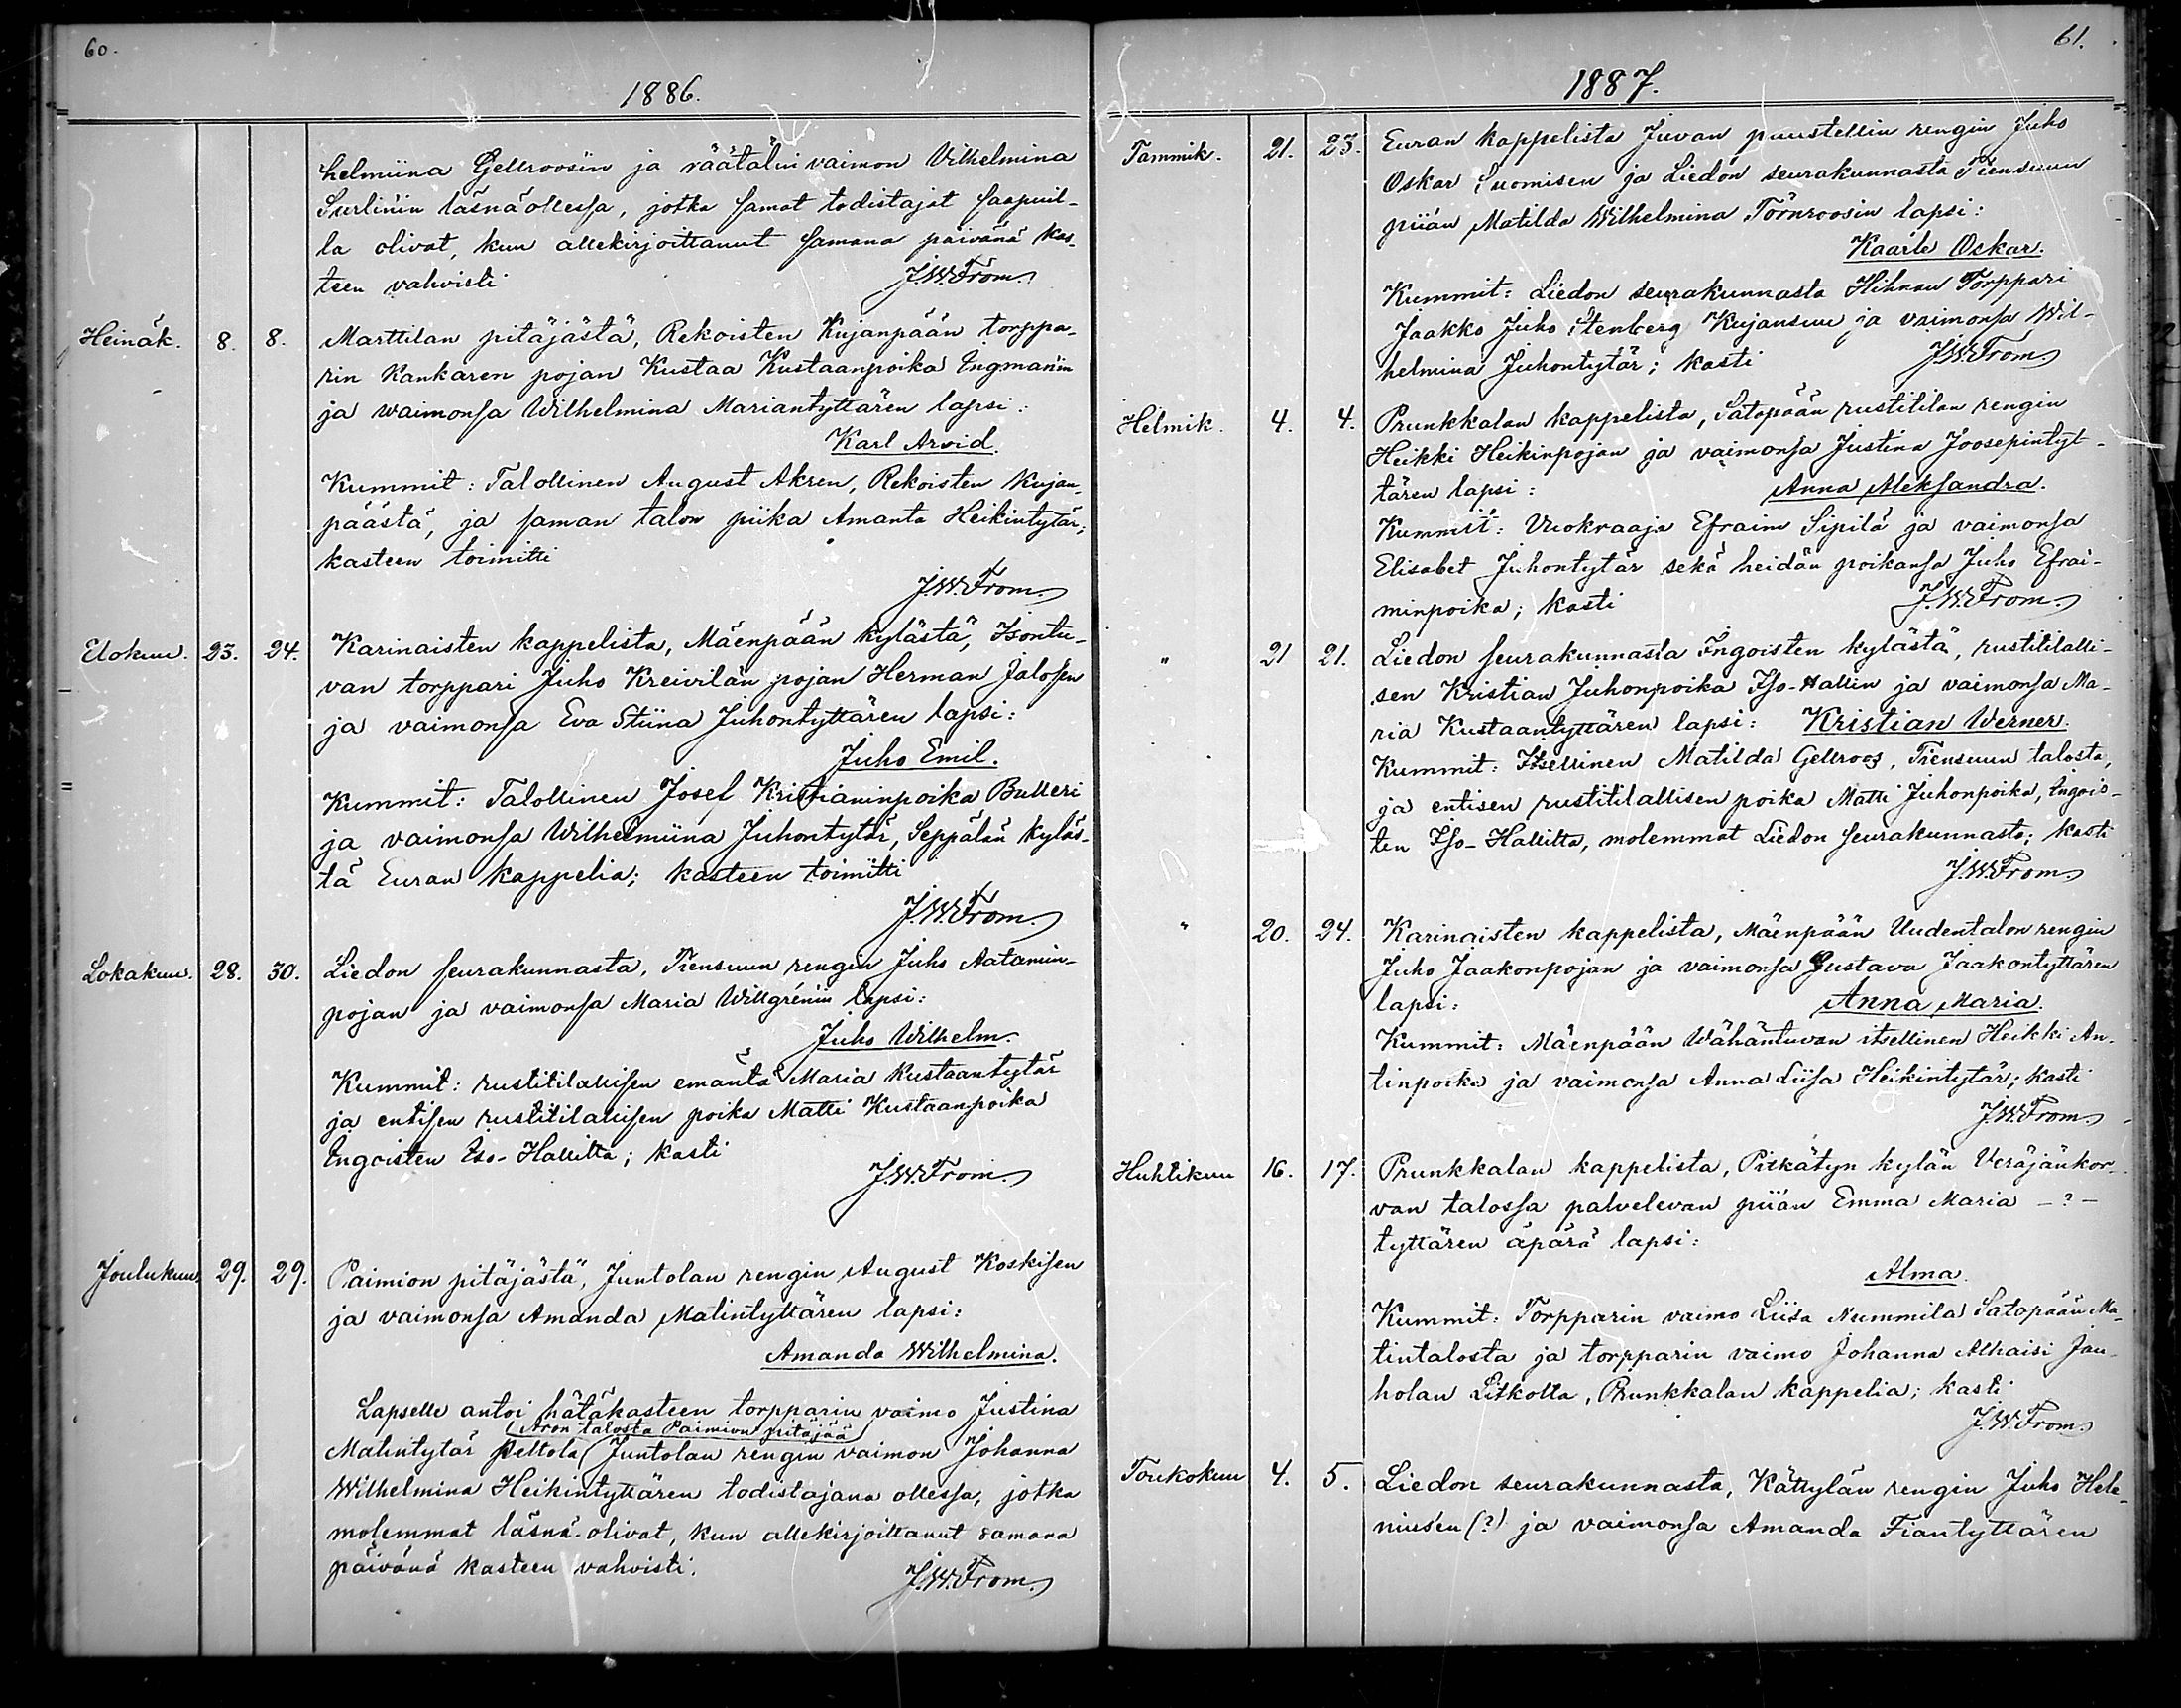 60.
1886.
helmiina Gellroosin ja räätälin vaimon Vilhelmina
Surlinin läsnäollessa, jotka samat todistajat saapuil-
la olivat, kun allekirjoittanut samana päivänä kas-
teen vahvisti J.W.From.
Heinäk. 8. 8. Marttilan pitäjästä, Rekoisten Kujanpään torppa-
rin Kankaren pojan Kustaa Kustaanpoika Engmanin
ja waimonsa Wilhelmina Mariantyttären lapsi:
Karl Arvid.
Kummit: Talollinen August Akren, Rekoisten Kujan-
päästä, ja saman talon piika Amanta Heikintytär;
kasteen toimitti
J.W.From.
Elokuu. 23. 24. Karinaisten kappelista, Mäenpään kylästä, Isontu-
van torppari Juho Kreivilän pojan Herman Jalosen
ja vaimonsa Eva Stiina Juhontyttären lapsi:
Juho Emil.
Kummit: Talollinen Josef Kristianinpoika Bulleri
ja vaimonsa Wilhelmiina Juhontytär, Seppälän kyläs-
tä Euran kappelia; kasteen toimitti
J.W.From.
Lokakuu. 28. 30. Liedon seurakunnasta, Tiensuun rengin Juho Aatamin-
pojan ja vaimonsa Maria Willgrénin lapsi:
Juho Wilhelm.
Kummit: rustitilallisen emäntä Maria Kustaantytär
ja entisen rustitilallisen poika Matti Kustaanpoika
Engoisten Iso-Hallilta; kasti
J.W.From.
Joulukuu 29. 29. Paimion pitäjästä, Juntolan rengin August Koskisen
ja vaimonsa Amanda Matintyttären lapsi:
Amanda Wilhelmina.
Lapselle antoi hätäkasteen torpparin vaimo Justina
(Aron talosta Paimion pitäjää)
Matintytär Peltola Juntolan rengin vaimon Johanna
Wilhelmina Heikintyttären todistajana ollessa, jotka
molemmat läsnä-olivat, kun allekirjoittanut samana
päivänä kasteen vahvisti. J.W.From.
61.
1887.
Tammik. 21. 23. Euran kappelista Juvan puustellin rengin Juho
Oskar Suomisen ja Liedon seurakunnasta Tiensuun
piian Matilda Wilhelmina Törnroosin lapsi:
Kaarle Oskar.
Kummit: Liedon seurakunnasta Hihnan Torppari
Jaakko Juho Stenberg Kujansuu ja vaimonsa Wil-
helmina Juhontytär; kasti J.W.From.
Helmik. 4. 4. Prunkkalan kappelista, Satopään rustitilan rengin
Heikki Heikinpojan ja vaimonsa Justina Joosepintyt-
tären lapsi: Anna Aleksandra.
Kummit: Vuokraaja Efraim Sipilä ja vaimonsa
Elisabet Juhontytär sekä heidän poikansa Juho Efrai-
minpoika; kasti J.W.From.
" 21 21. Liedon seurakunnasta Ingoisten kylästä, rustitilalli-
sen Kristian Juhonpoika Iso-Hallin ja vaimonsa Ma-
ria Kustaantyttären lapsi: Kristian Werner.
Kummit: Itsellinen Matilda Gellroos, Tiensuun talosta,
ja entisen rustitilallisen poika Matti Juhonpoika, Engois-
ten Iso-Hallilta, molemmat Liedon seurakunnasta; kasti
J.W.From.
" 20. 24. Karinaisten kappelista, Mäenpään Uudentalon rengin
Juho Jaakonpojan ja vaimonsa Gustava Jaakontyttären
lapsi: Anna Maria.
Kummit: Mäenpään Wähäntuvan itsellinen Heikki An-
tinpoika ja vaimonsa Anna Liisa Heikintytär; kasti
J.W.From.
Huhtikuu 16. 17. Prunkkalan kappelista, Pitkätyn kylän Veräjänkor-
van talossa palvelevan piian Emma Maria -?-
tyttären äpärä lapsi:
Alma.
Kummit: Torpparin vaimo Liisa Nummila Satopään Ma-
tintalosta ja torpparin vaimo Johanna Alhaisi Jau-
holan Litkolta, Prunkkalan kappelia; kasti
J.W.From.
Toukokuu 4. 5. Liedon seurakunnasta, Kättylän rengin Juho Hele-
niusen (?) ja vaimonsa Amanda Fiantyttären